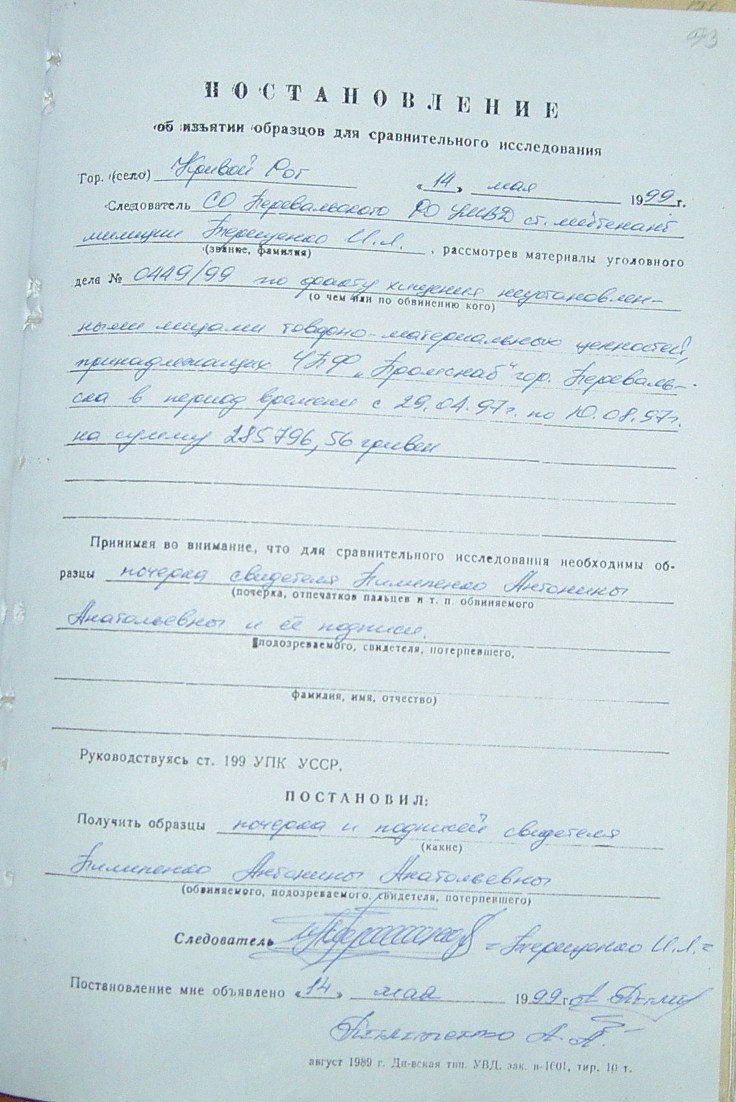 93
ПОСТАНОВЛЕНИЕ
об изъятии образцов для сравнительного исследования
Гор. (село) Кривой Рог « 14 » мая 1999 г.
Следователь СО Перевальского РО УМВД ст. лейтенант
милиции Терещенко И.Л. , рассмотрев материалы уголовного
(звание, фамилия)
дела № 0449/99 по факту хищения неустановлен-
(о чем или по обвинению кого)
ными лицами товарно-материальных ценностей,
принадлежащих ЧПФ „Промснаб" гор. Переваль-
ска в период времени с 29.04.97г. по 10.08.97г.
на сумму 285796,56 гривен
Принимая во внимание, что для сравнительного исследования необходимы об-
разцы почерка свидетеля Пилипенко Антонины
(почерка, отпечатков пальцев и т. п. обвиняемого
Анатольевны и её подписи.
подозреваемого, свидетеля, потерпевшего,
фамилия, имя, отчество)
Руководствуясь ст. 199 УПК УССР.
ПОСТАНОВИЛ:
Получить образцы почерка и подписей свидетеля
(какие)
Пилипенко Антонины Анатольевны
(обвиняемого, подозреваемого, свидетеля, потерпевшего)
Следователь =Терещенко И.Л.=
Постановление мне объявлено «14» мая 1999 г.
Пилипенко А. А.
август 1989 г. Дн-вская тип. УВД, зак. н-1601, тир. 10 т.